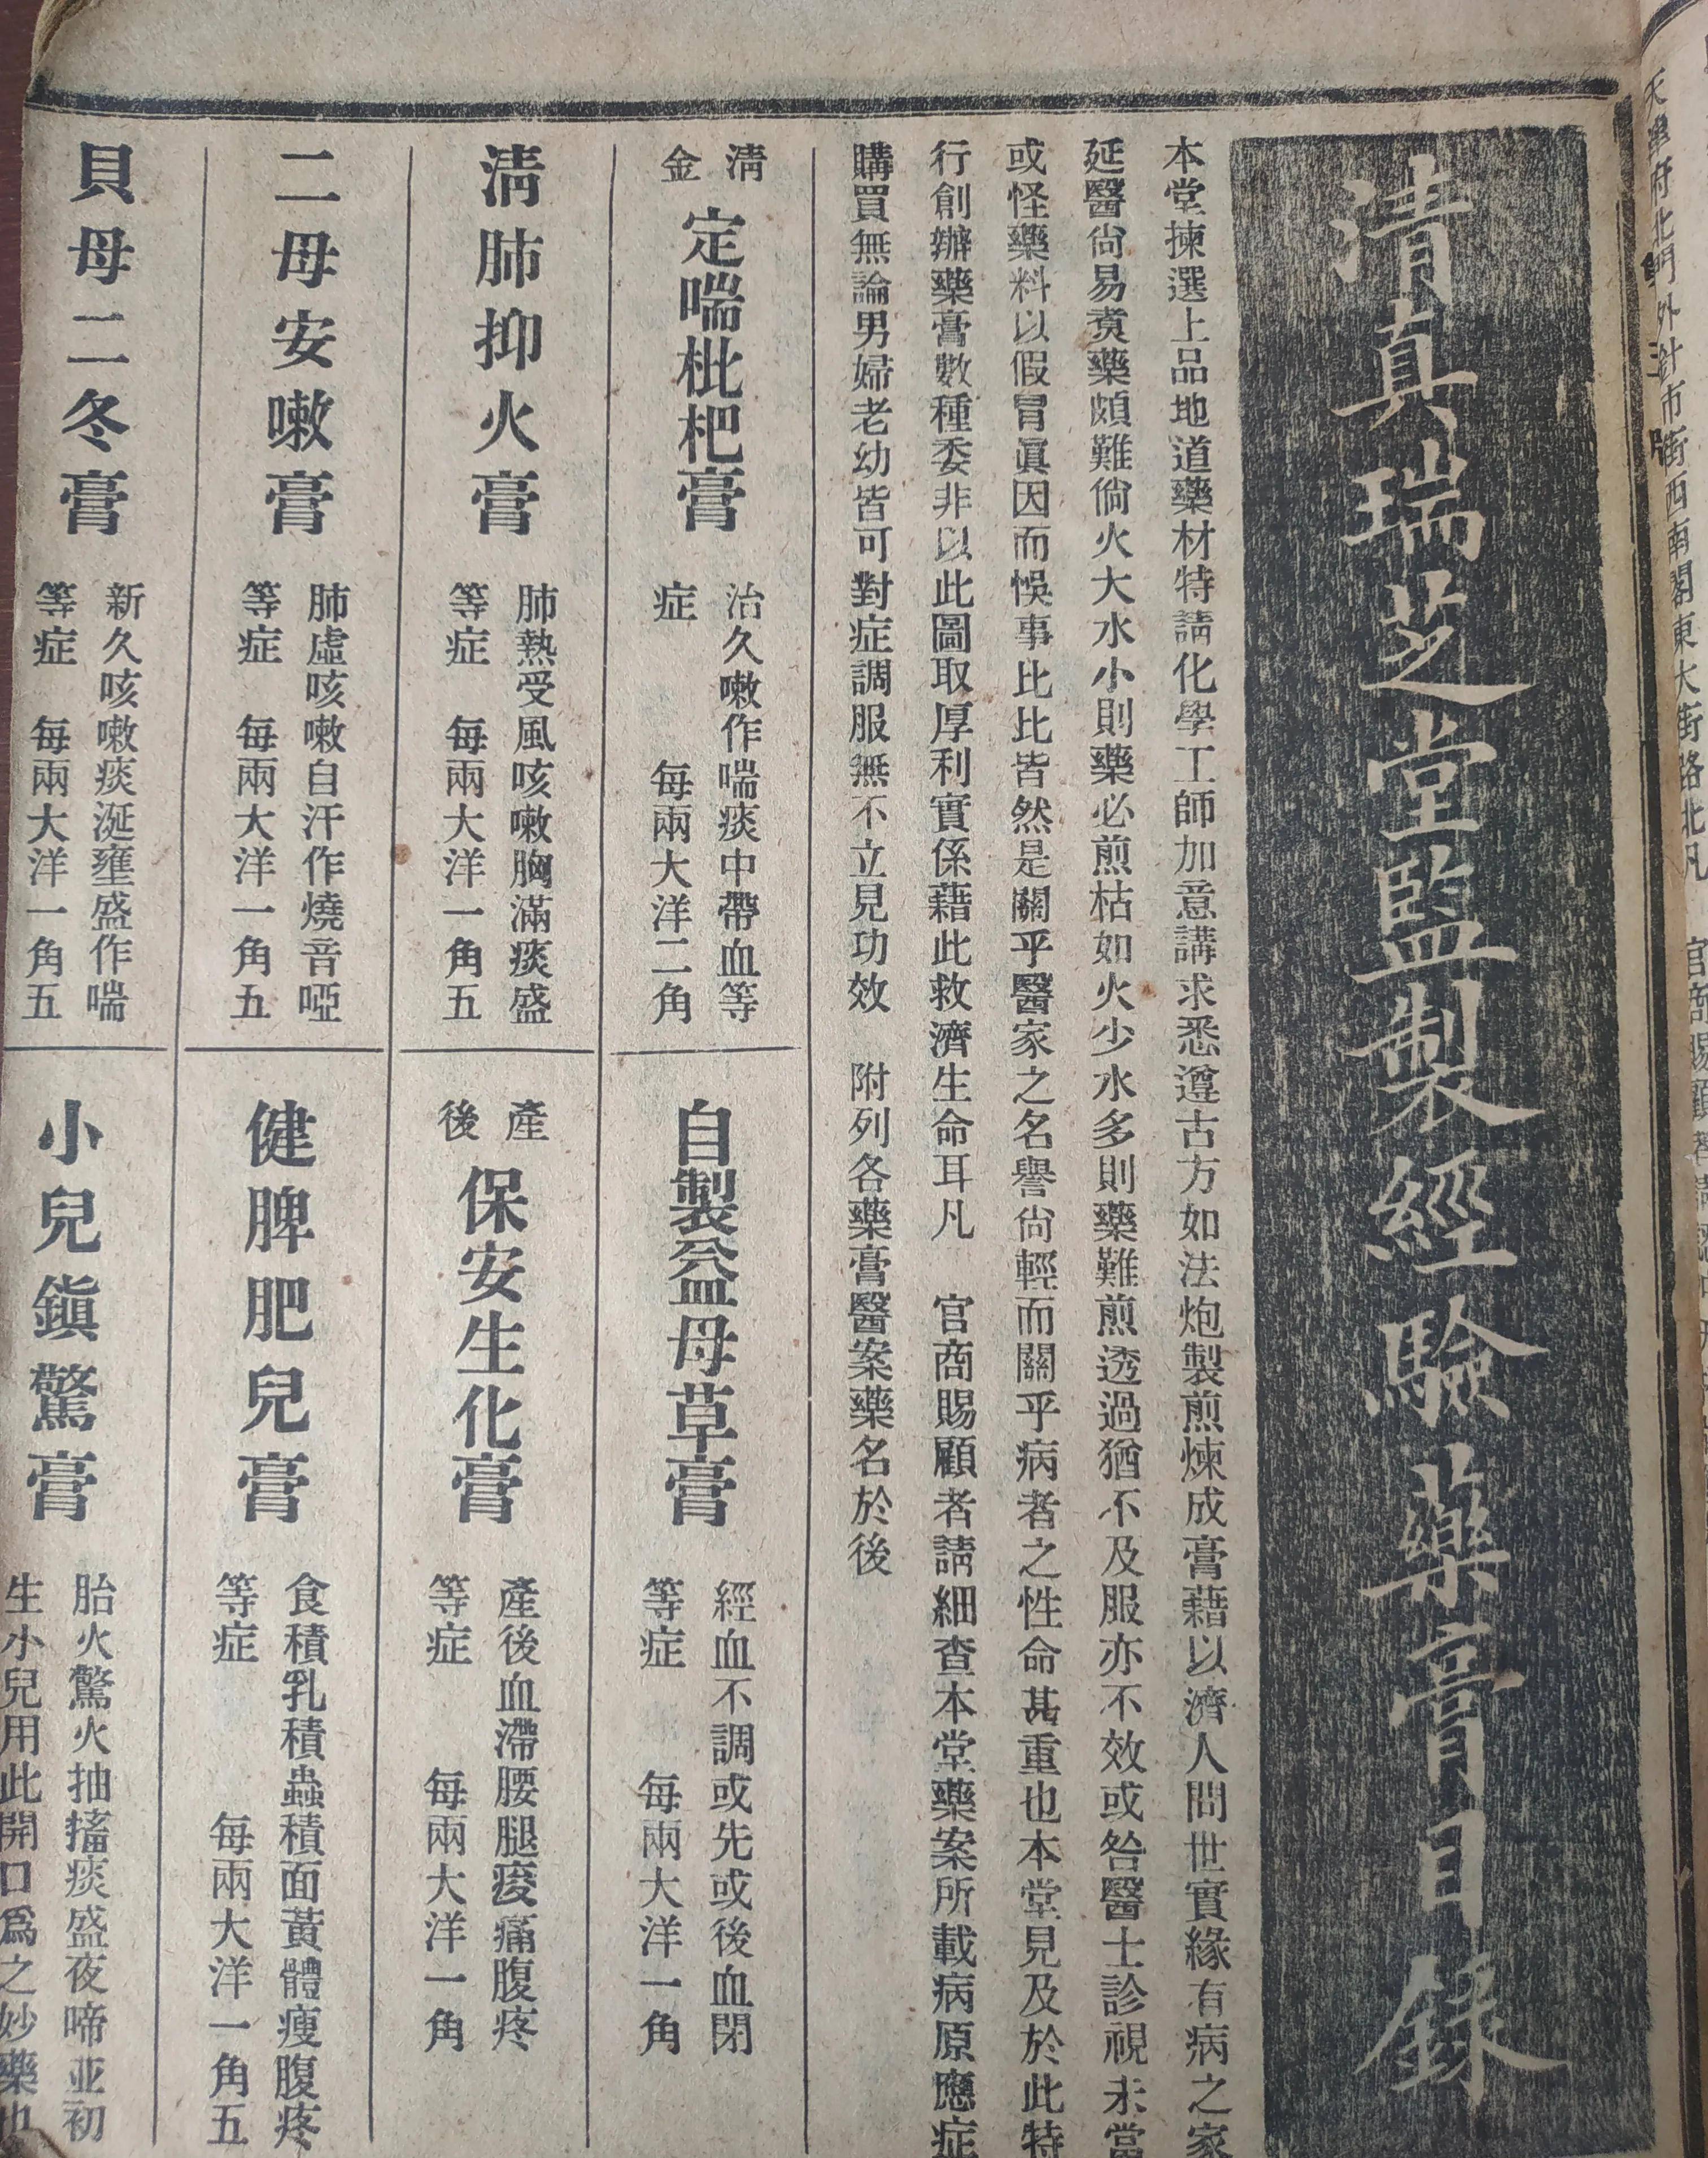 天津府北門外針市街西南閣東大街路北凡
清真瑞芝堂監製經驗藥膏目錄
本堂揀選上品地道藥材特請化學工師加意講求悉遵古方如法炮製煎煉成膏藉以濟人問世實緣有病之家
延醫尙易煑藥頗難倘火大水小則藥必煎枯如火少水多則藥難煎透過猶不及服亦不效或咎醫士診視未當
或怪藥料以假冒眞因而悞事比比皆然是關乎醫家之名譽尙輕而關乎病者之性命甚重也本堂見及於此特
行創辦藥膏數種委非以此圖取厚利實係藉此救濟生命耳凡 官商賜顧者請細查本堂藥案所載病原應症
購買無論男婦老幼皆可對症調服無不立見功效 附列各藥膏醫案藥名於後
清金定喘枇杷膏
治久嗽作喘痰中帶血等
症 每兩大洋二角
自製益母草膏
經血不調或先或後血閉
等症 每兩大洋一角
淸肺抑火膏
肺熱受風咳嗽胸滿痰盛
等症 每兩大洋一角五
產後保安生化膏
產後血滯腰腿痠痛腹疼
等症 每兩大洋一角
二母安嗽膏
肺虛咳嗽自汗作燒音啞
等症 每兩大洋一角五
健脾肥兒膏
食積乳積蟲積面黃體瘦腹疼
等症 每兩大洋一角五
貝母二冬膏
新久咳嗽痰涎壅盛作喘
等症 每兩大洋一角五
小兒鎭驚膏
胎火驚火抽搐痰盛夜啼並初
生小兒用此開口爲之妙藥也